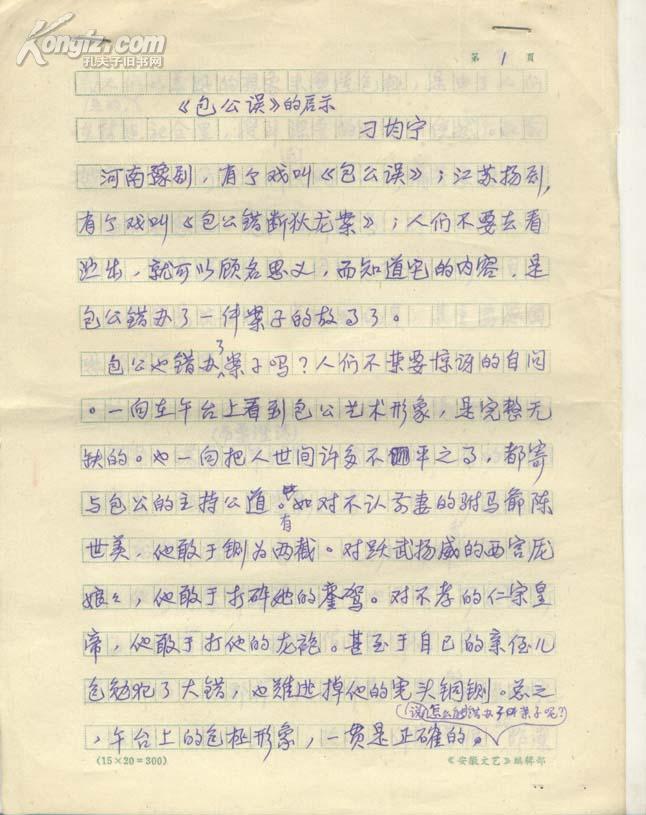 Kongfz.com
孔夫子旧书网
第 1 页
《包公误》的启示
刁均宁
河南豫剧,有个戏叫《包公误》;江苏扬剧,
有个戏叫《包公错断狄龙案》;人们不要去看
演出,就可以顾名思义,而知道它的内容,是
包公错办了一件案子的故事了。
包公也错办了案子吗?人们不禁要惊讶的自问
。一向在午台上看到包公艺术形象,是完整无
缺的。也一向把人世间许多不平之事,都寄
与包公的主持公道。如对不认前妻的驸马爷陈
世美,他敢于铡为两截。对跃武扬威的西宫庞
娘々,他敢于打碎她的銮驾。对不孝的仁宗皇
帝,他敢于打他的龙袍。甚至于自己的亲侄儿
包勉犯了大错,也难逃掉他的虎头铜铡。总之
,午台上的包拯形象,一贯是正确的。
(该怎么能错办了件案子呢?)
(15×20=300)
《安徽文艺》编辑部